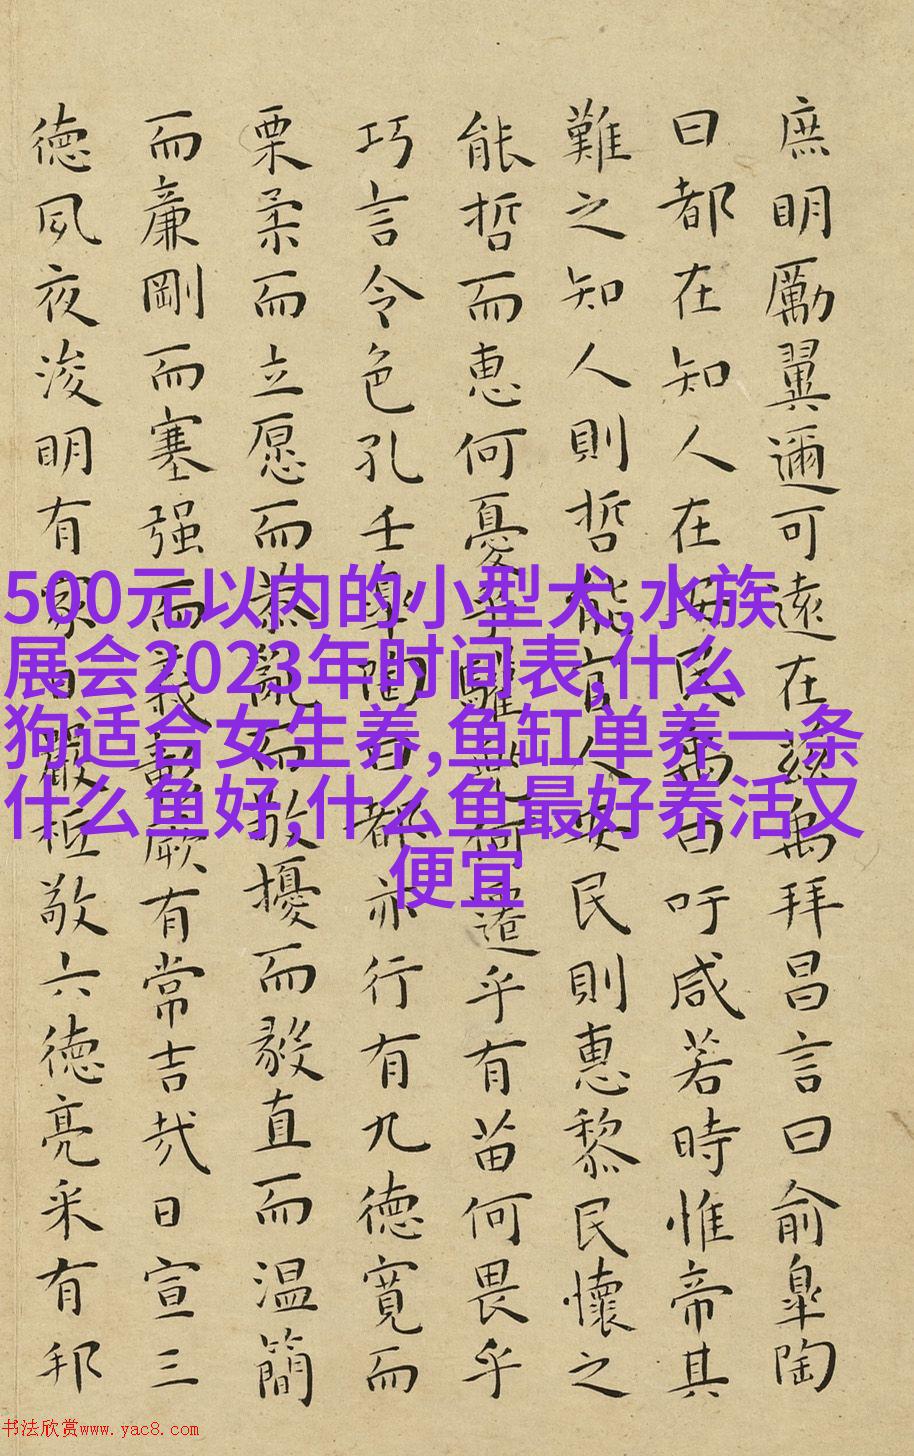 庶明厲翼邇可遠在兹禹拜昌言曰俞皐陶
曰都在知人在安民禹曰吁咸若時惟帝其
難之知人則哲能官人安民則惠黎民懷之
能哲而恵何憂乎驩兜何遷乎有苗何畏乎
巧言令色孔壬皐陶曰都亦行有九徳寛而
栗柔而立愿而恭亂而敬擾而毅直而温簡
而廉剛而塞强而義彰厥有常吉哉日宣三
徳夙夜浚明有家日嚴祗敬六徳亮采有邦
500元以内的小型犬,水族
展会2023年时间表,什么
狗适合女生养,鱼缸单养一条
什么鱼好,什么鱼最好养活又
便宜
书法欣赏www.yac8.com